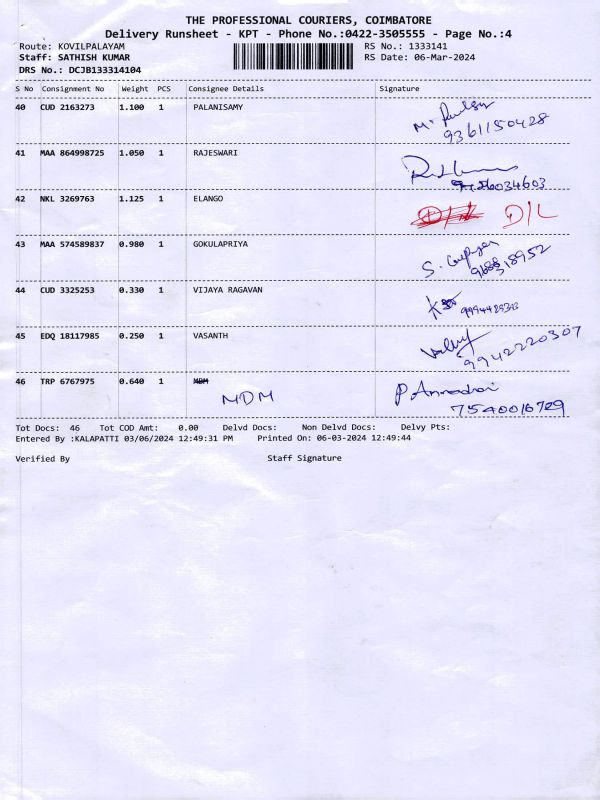 THE PROFESSIONAL COURIERS, COIMBATORE
Delivery Runsheet - KPT - Phone No.:0422-3505555 - Page No.:4
Route: KOVILPALAYAM RS No.: 1333141
Staff: SATHISH KUMAR RS Date: 06-Mar-2024
DRS No.: DCJB133314104
S No Consignment No Weight PCS Consignee Details Signature
40 CUD 2163273 1.100 1 PALANISAMY
9361150428
41 MAA 864998725 1.050 1 RAJESWARI
42 NKL 3269763 1.125 1 ELANGO D/L
43 MAA 574589837 0.980 1 GOKULAPRIYA
44 CUD 3325253 0.330 1 VIJAYA RAGAVAN
45 EDQ 18117985 0.250 1 VASANTH
9942220307
46 TRP 6767975 0.640 1 MDM
MDM
7540016729
Tot Docs: 46 Tot COD Amt: 0.00 Delvd Docs: Non Delvd Docs: Delvy Pts:
Entered By :KALAPATTI 03/06/2024 12:49:31 PM Printed On: 06-03-2024 12:49:44
Verified By Staff Signature